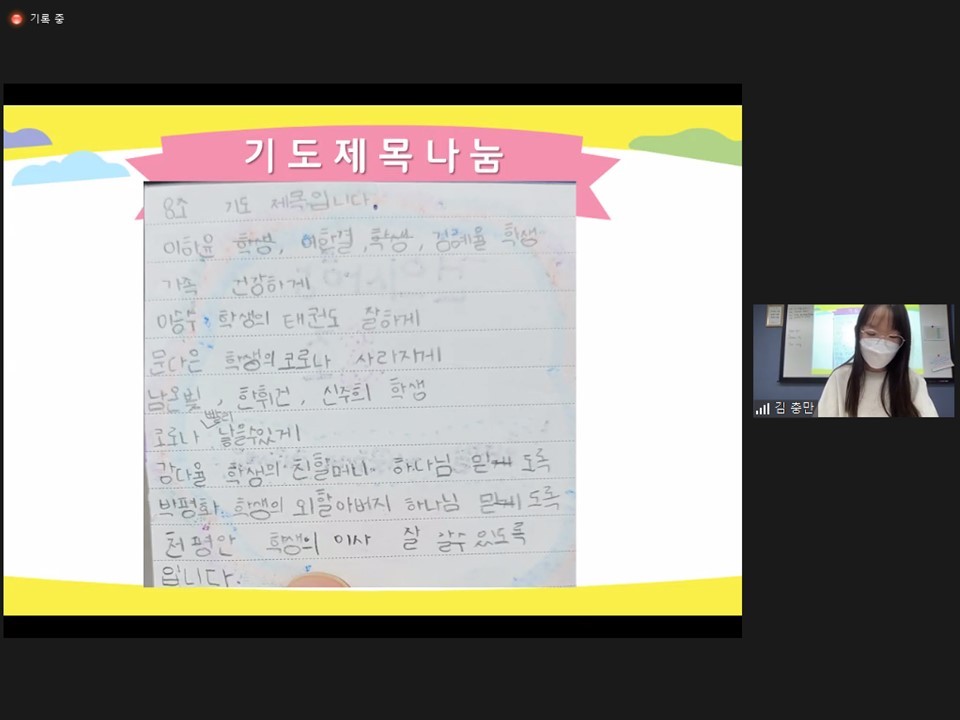 기록 중
기도제목나눔
8조 기도 제목입니다.
이하윤 학생, 이한결, 학생, 김예율 학생
가족 건강하게
이승수, 학생의 태권도 잘하게
문다은 학생의 코로나 사라지게
남은빛, 한휘건, 신주희 학생
빨리
코로나 낳을수있게
강다율 학생의 친할머니 하나님 믿 도록
박평화 학생의 외할아버지 하나님 믿 도록
천평안 학생의 이사 잘 갈수 있도록
입니다.
김 충만